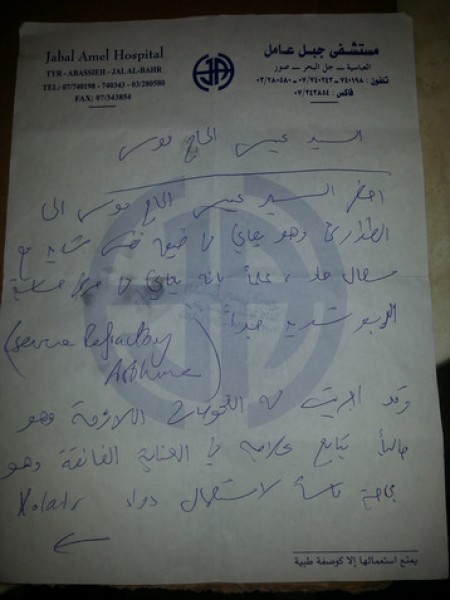 Jabal Amel Hospital
TYR - ABASSIEH - JAL AL-BAHR
TEL: 07/740198 - 740343 - 03/280580
FAX: 07/343854
مستشفى جبل عامل
العباسية – جل البحر – صور
تلفون: ٧٤٠١٩٨-٠٧/٧٤٠٣٤٣-٠٣/٢٨٠٥٨٠
فاكس: ٠٧/٣٤٣٨٥٤
السيد عيسى الحاج موسى
احضر السيد عيسى الحاج موسى الى
الطوارئ وهو يعاني من ضيق نفس شديد مع
سعال حاد، علماً بانه يعاني من مرض حساسية
الربو شديد جداً
(severe Refractory
Asthma)
وقد اجريت له الفحوصات اللازمة وهو
حالياً يتابع علاجه في العناية الفائقة وهو
بحاجة ماسة لاستعمال دواء Xolair
يمنع استعمالها إلا كوصفة طبية